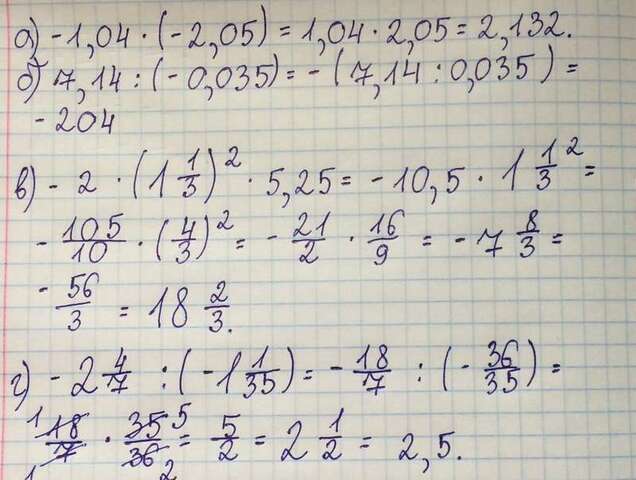 а) -1,04 · (-2,05) = 1,04 · 2,05 = 2,132.
б) 7,14 : (-0,035) = - (7,14 : 0,035) =
- 204
в) - 2 · (1 1/3)² · 5,25 = -10,5 · 1 1/3 ² =
- 105/10 · (4/3)² = - 21/2 · 16/9 = - 7 8/3 =
- 56/3 = 18 2/3.
г) - 2 4/7 : (-1 1/35) = - 18/7 : (- 36/35) =
1 18/7 1 · 35 5/36 2 = 5/2 = 2 1/2 = 2,5.